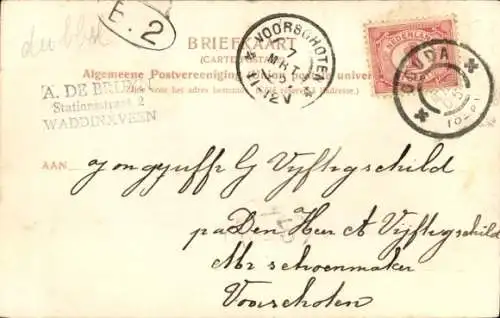 dubbel
E.2
BRIEFKAART
(CARTE POSTALE)
Algemeene Postvereeniging (Union postale universelle)
Zijde voor het adres bestemd.
A. DE BRUYN
Stationsstraat 2
WADDINXVEEN
VOORSCHOTEN
7
MRT
5
7-12V
NEDERLAND
GOUDA
AAN Jongejuffr G Vijfhegschild
pa Den Heer A Vijfhegschild
Mr schoenmaker
Voorschoten